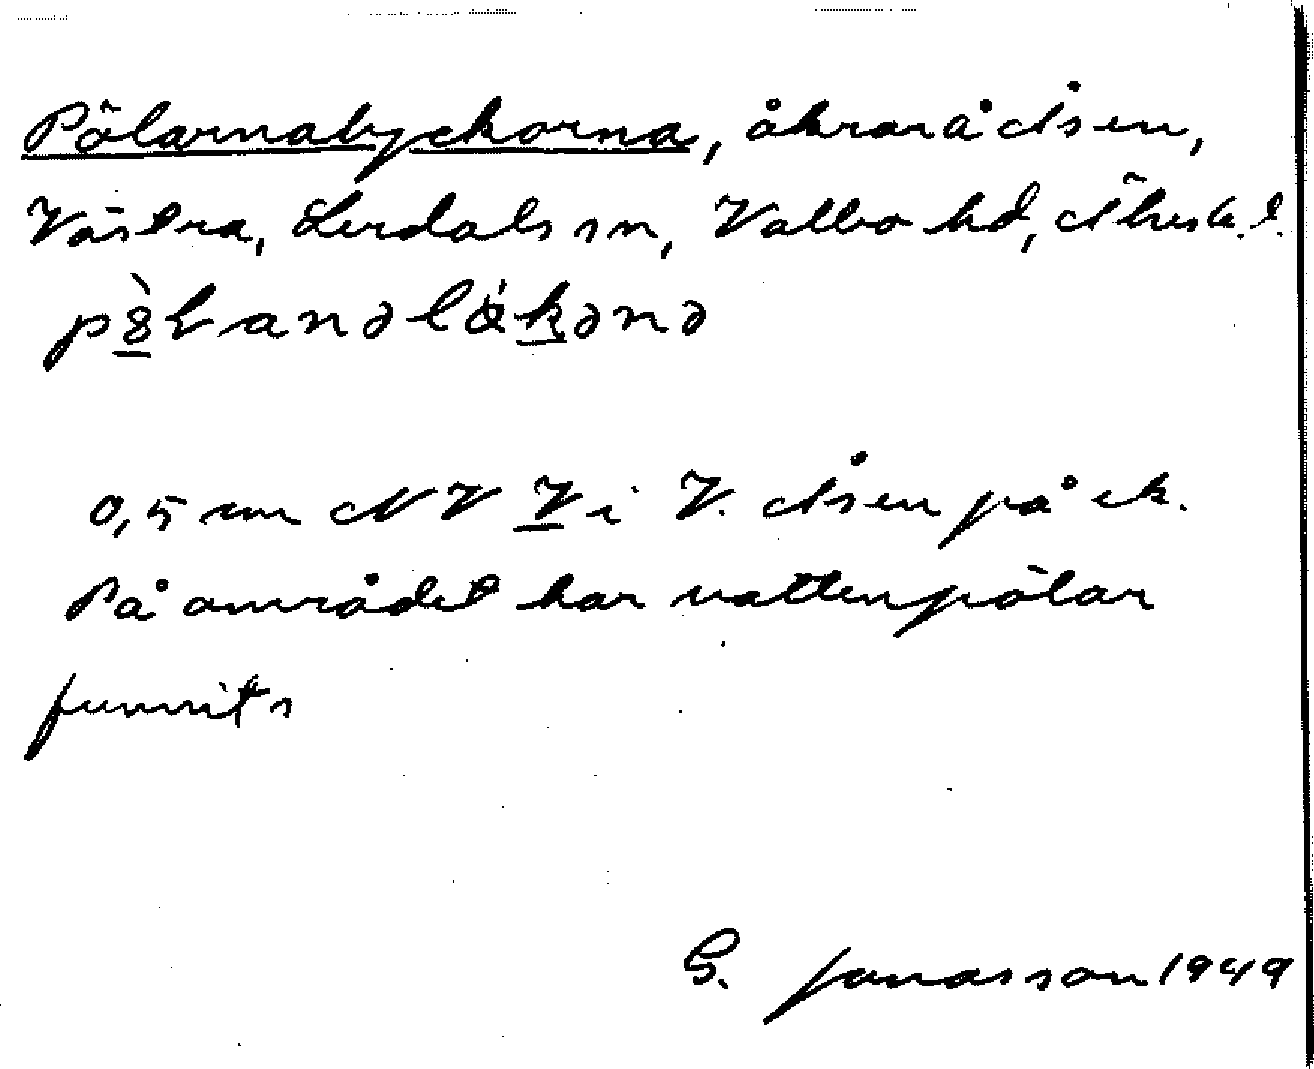 Pölarnalyckorna, åkrar å Åsen,
Västra, Lerdals sn, Valbo hd, Älvsb. l.
pö̀lanəlǿkənə
0,5 cm NV V i V. Åsen på ek.
På området har vattenpölar
funnits
G. Jonasson 1949